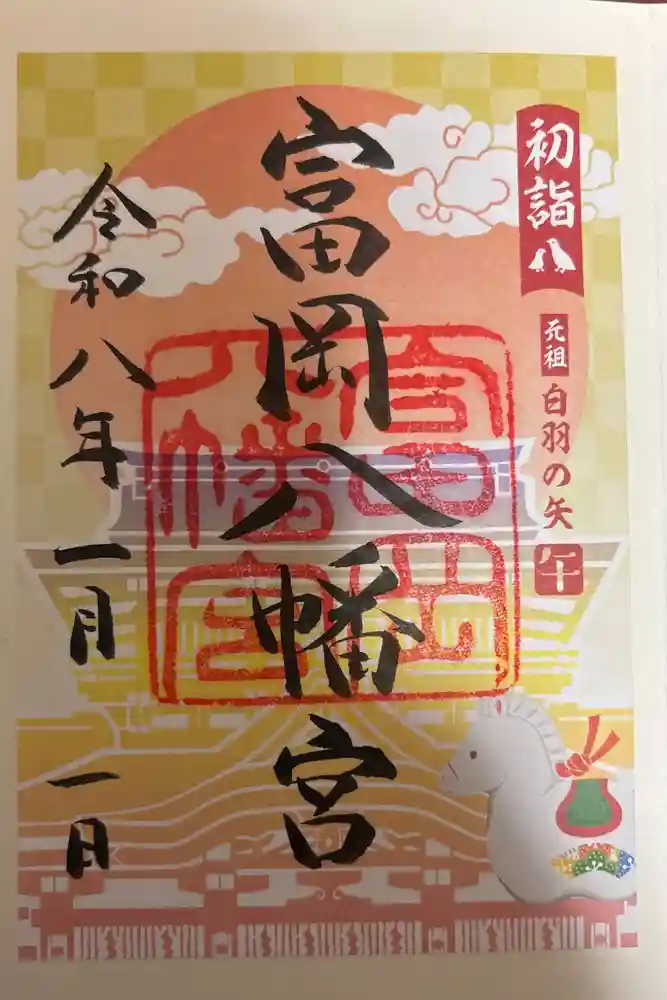 初詣
元祖
白羽の矢
午
富岡八幡宮
富岡
八幡宮
令和八年一月一日